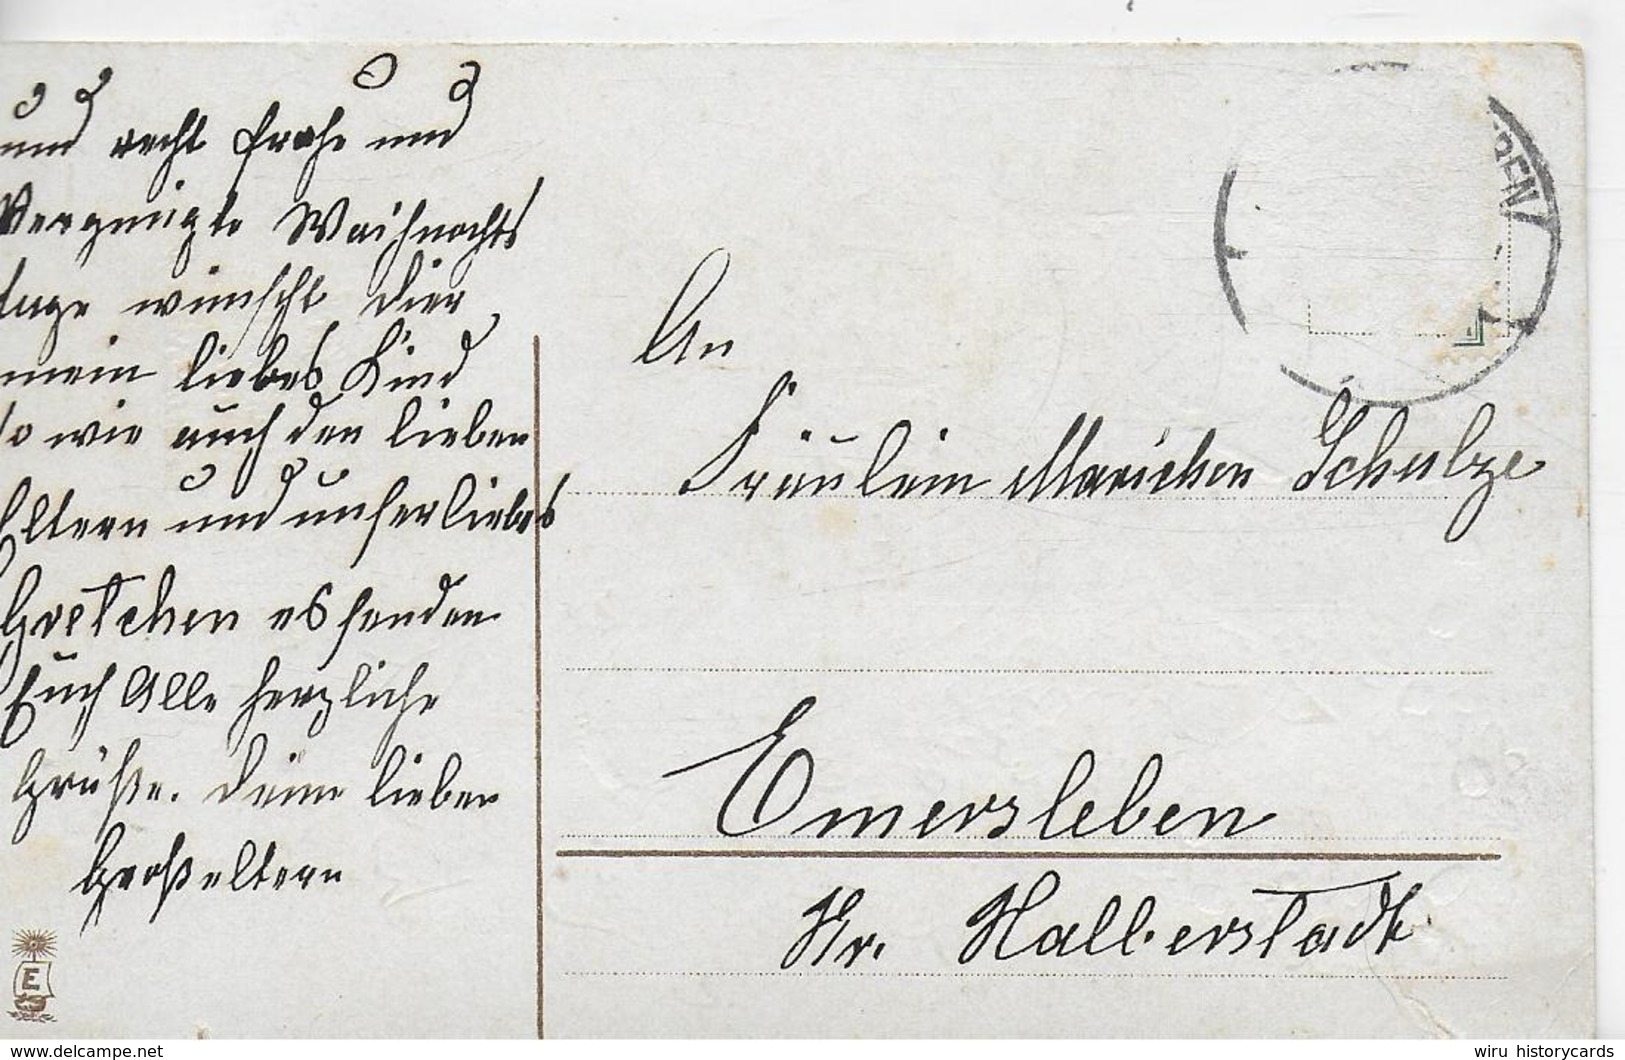 und recht frohe und
Vergnügte Weihnachts
tage wünscht Dier
mein liebes Kind
so wie auch den lieben
Eltern und unser liebes
Gretchen es senden
Euch Alle herzliche
Grüße. Deine lieben
Großeltern
E
An
Fräulein Mariechen Schulze
Emersleben
Kr. Halberstadt
wiru historycards
www.delcampe.net